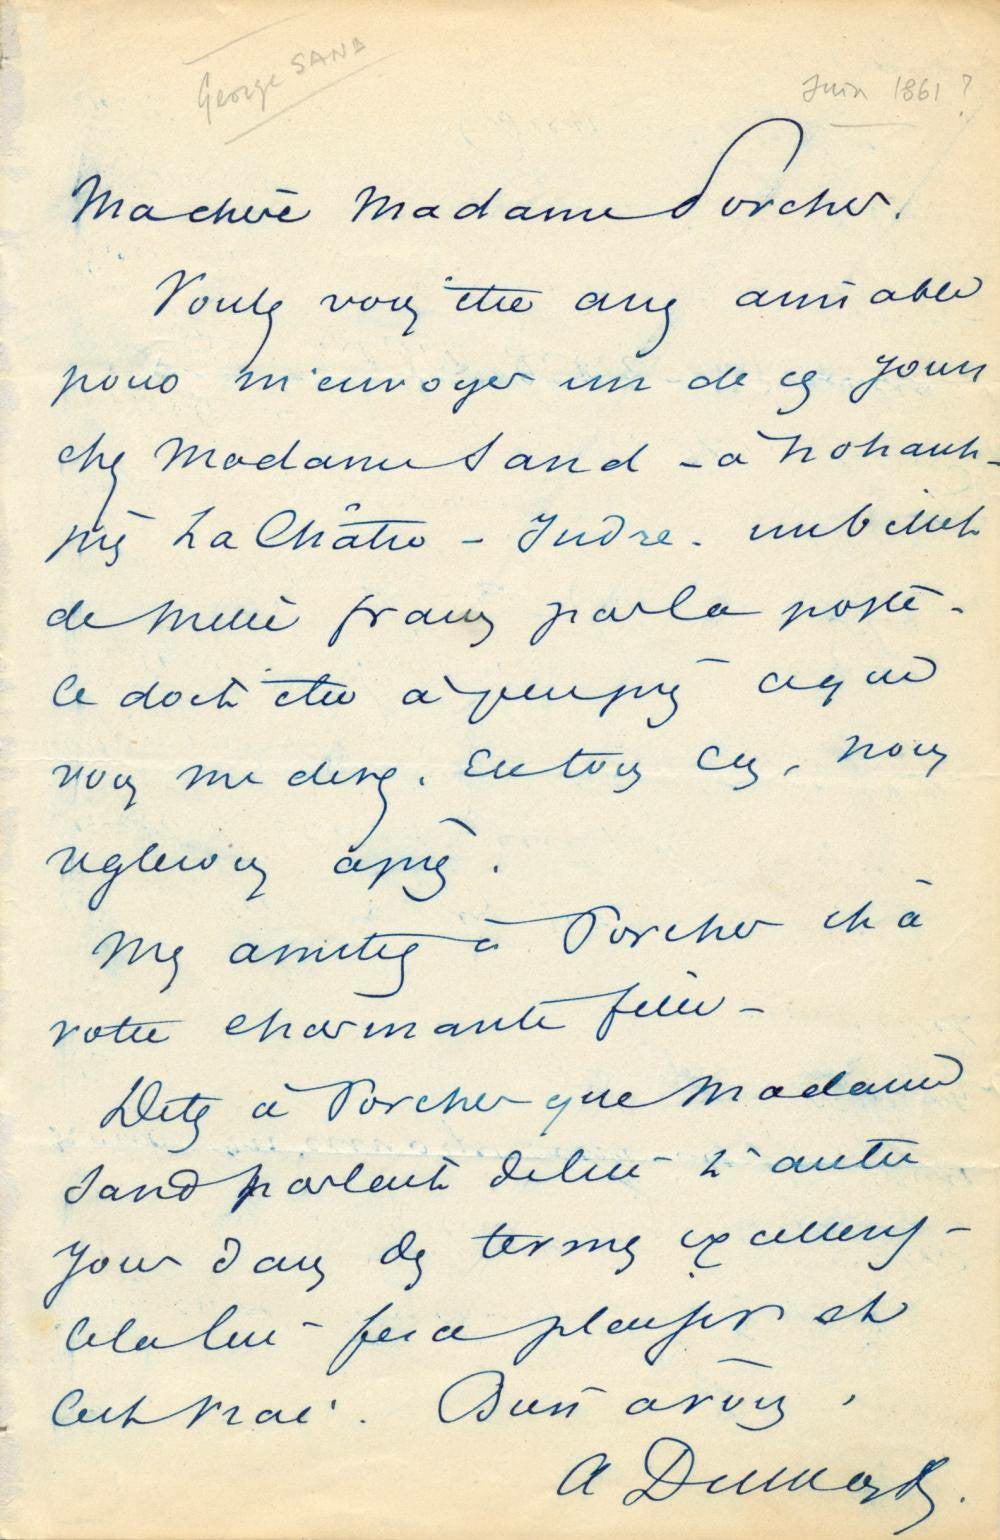 George SAND
Juin 1861 ?
Ma chère Madame Porcher.
Voulez vous être assez aimable
pour m'envoyer un de ces jours
chez Madame Sand - à Nohant -
près La Châtre - Indre. un billet
de mille francs par la poste -
Ce doit être à peu près ce que
vous me devez. En tous cas, nous
règlerons après.
Mes amitiés à Porcher et à
votre charmante fille -
Dites à Porcher que Madame
Sand parlait de lui l'autre
jour dans des termes excellens -
Cela lui fera plaisir et
c'est vrai. Bien à vous,
A Dumas fils.